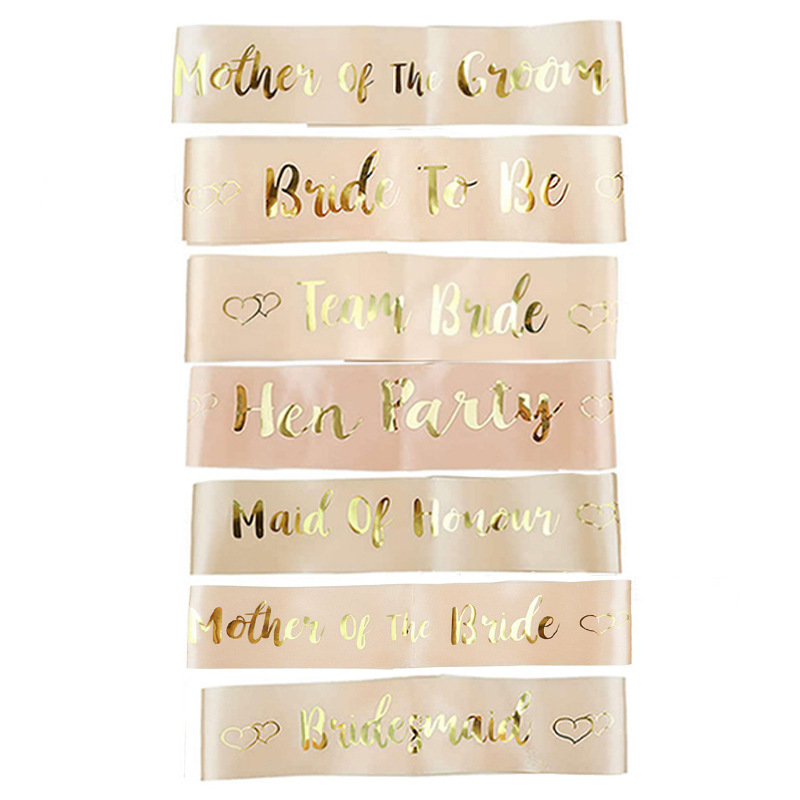 Mother Of The Groom
Bride To Be
Team Bride
Hen Party
Maid Of Honour
Mother Of The Bride
Bridesmaid